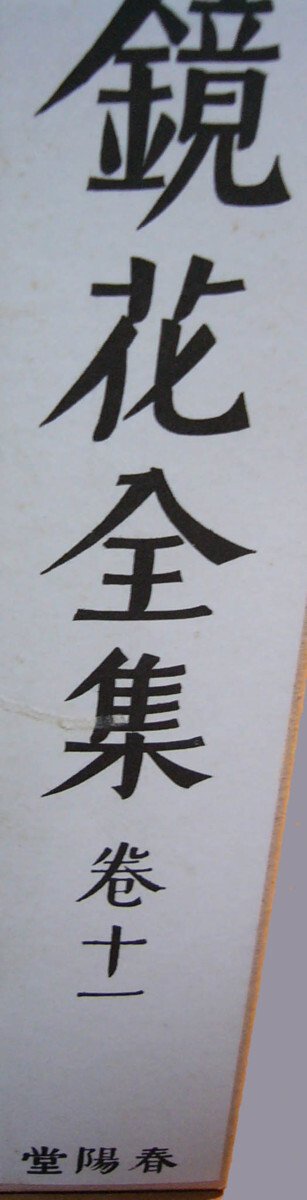 鏡花全集
卷十一
春陽堂